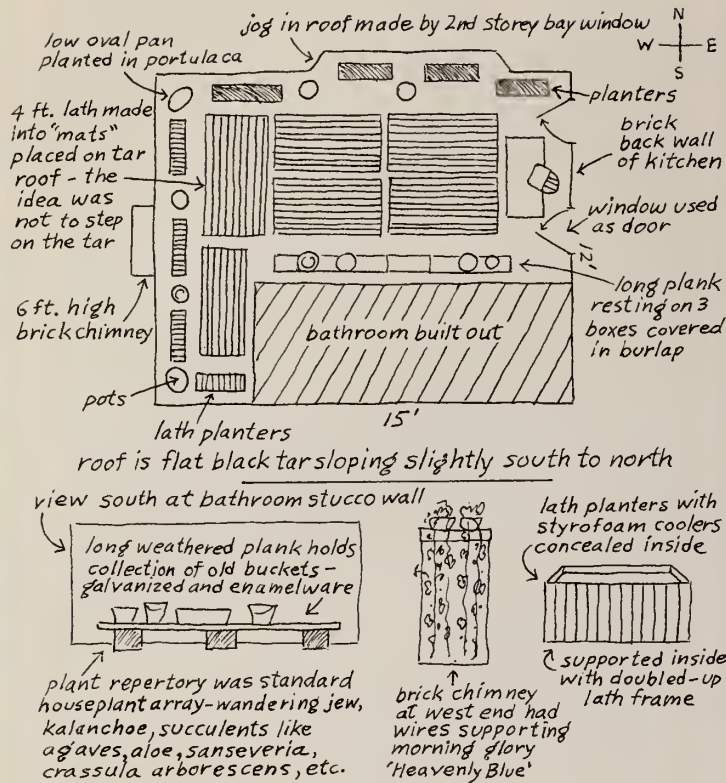 jog in roof made by 2nd storey bay window
N
W E
S
low oval pan
planted in portulaca
4 ft. lath made
into "mats"
placed on tar
roof - the
idea was
not to step
on the tar
6 ft. high
brick chimney
pots
lath planters
planters
brick
back wall
of kitchen
window used
as door
12'
long plank
resting on 3
boxes covered
in burlap
bathroom built out
15'
roof is flat black tar sloping slightly south to north
view south at bathroom stucco wall
long weathered plank holds
collection of old buckets -
galvanized and enamelware
plant repertory was standard
houseplant array - wandering jew,
kalanchoe, succulents like
agaves, aloe, sanseveria,
crassula arborescens, etc.
brick chimney
at west end had
wires supporting
morning glory
'Heavenly Blue'
lath planters with
styrofoam coolers
concealed inside
supported inside
with doubled-up
lath frame